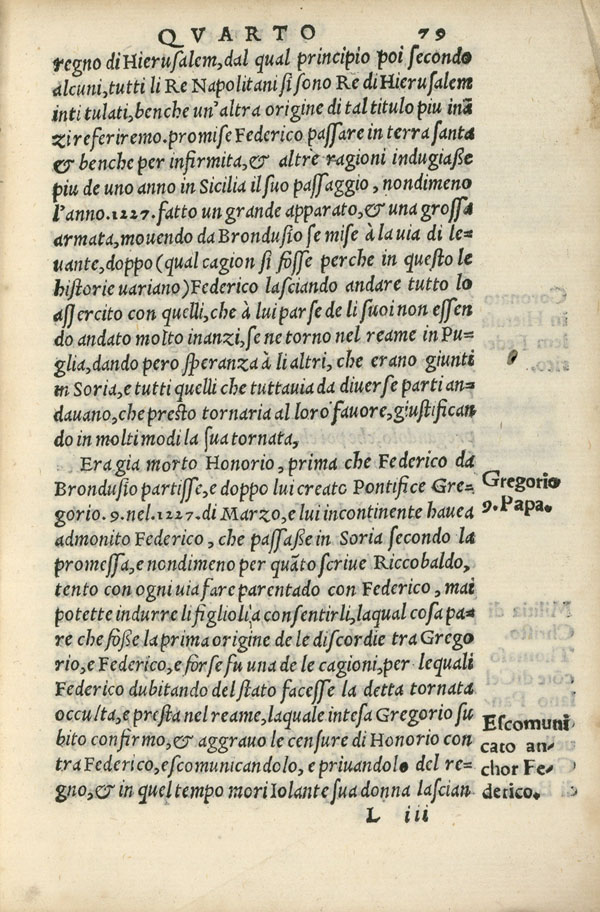 QVARTO 79
regno di Hierusalem, dal qual principio poi secondo
alcuni, tutti li Re Napolitani si sono Re di Hierusalem
inti tulati, benche un'altra origine di tal titulo piu inā
zi referiremo. promise Federico passare in terra santa
& benche per infirmita, & altre ragioni indugiaße
piu de uno anno in Sicilia il suo passaggio, nondimeno
l'anno. 1227. fatto un grande apparato, & una grossa
armata, mouendo da Brondusio se mise à la uia di le=
uante, doppo (qual cagion si fosse perche in questo le
historie uariano) Federico lasciando andare tutto lo
assercito con quelli, che à lui parse de li suoi non essen
do andato molto inanzi, se ne torno nel reame in Pu=
glia, dando pero speranza à li altri, che erano giunti
in Soria, e tutti quelli che tuttauia da diuerse parti an=
dauano, che presto tornaria al loro fauore, giustifican
do in molti modi la sua tornata,
Era gia morto Honorio, prima che Federico da
Brondusio partisse, e doppo lui creato Pontifice Gre=
gorio. 9. nel. 1227. di Marzo, e lui incontinente hauea
admonito Federico, che passaße in Soria secondo la
promessa, e nondimeno per quāto scriue Riccobaldo,
tento con ogni uia fare parentado con Federico, mai
potette indurre li figlioli a consentirli, laqual cosa pa=
re che foße la prima origine de le discordie tra Grego
rio, e Federico, e forse fu una de le cagioni, per lequali
Federico dubitando del stato facesse la detta tornata
occulta, e presta nel reame, laquale intesa Gregorio su
bito confirmo, & aggrauo le censure di Honorio con
tra Federico, escomunicandolo, e priuandolo del re=
gno, & in quel tempo mori Iolante sua donna lascian
L iii
Gregorio
9. Papa.
Escomuni
cato an=
chor Fe=
derico.